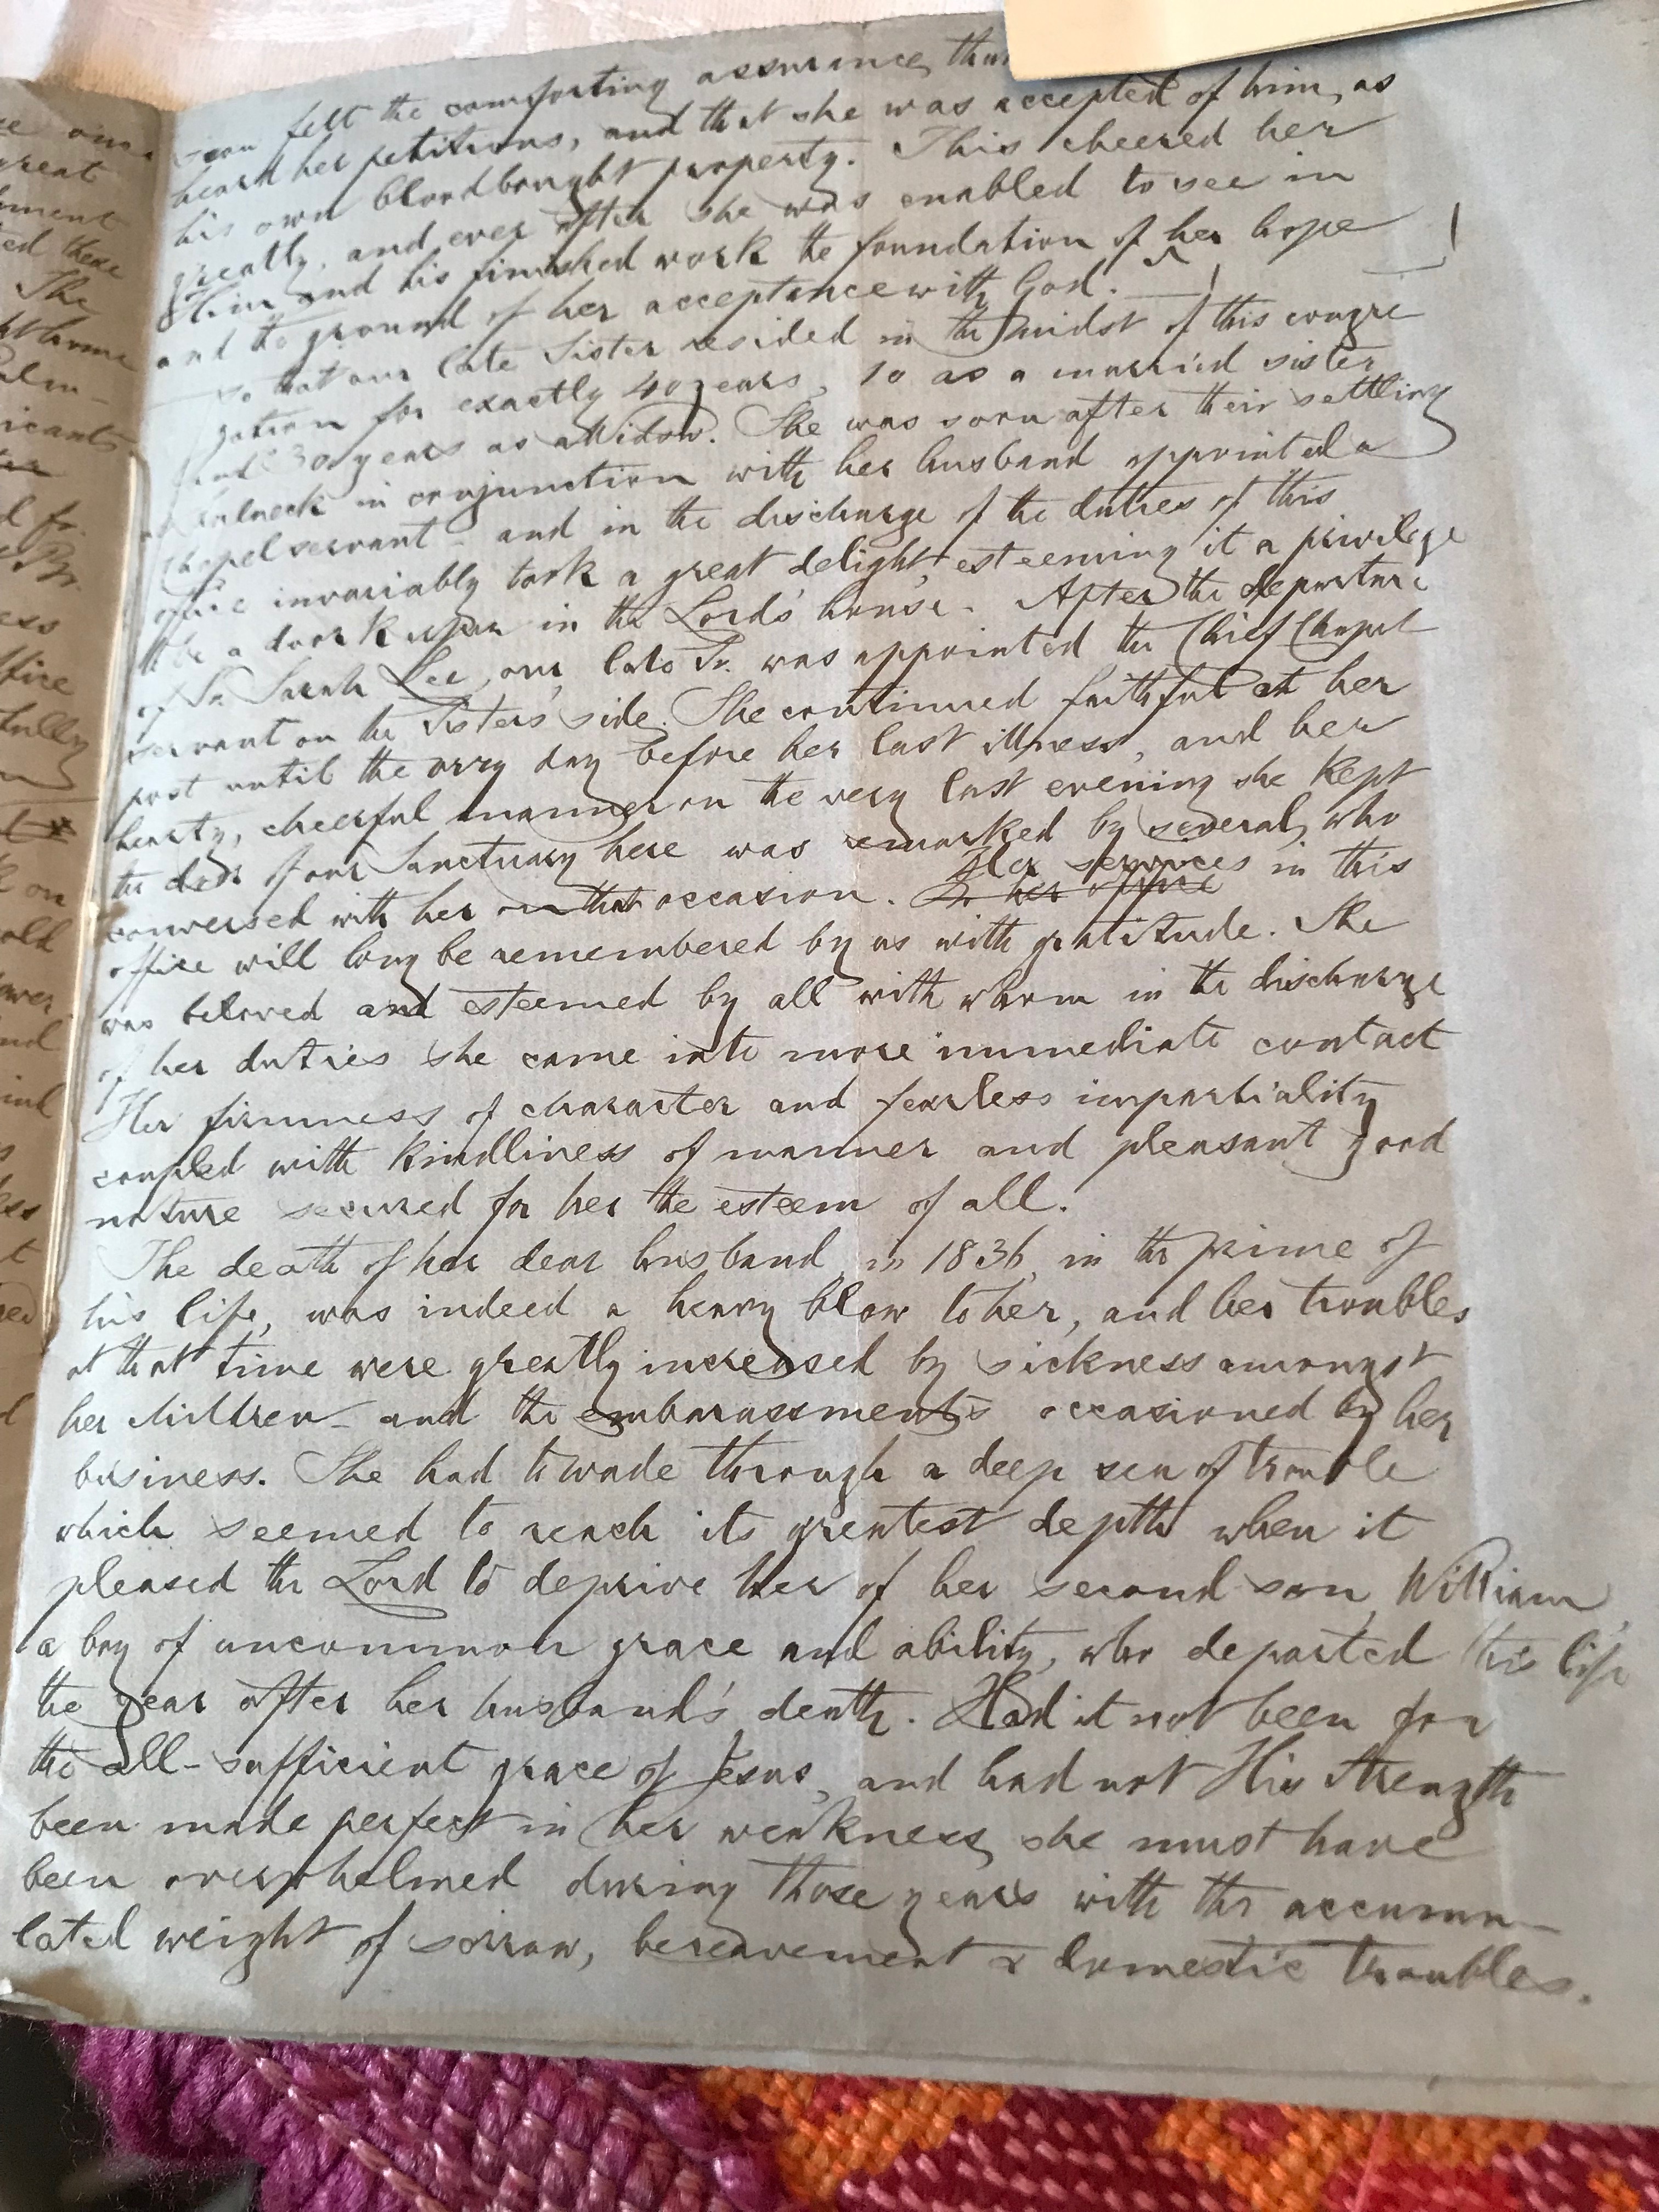 soon felt the comforting assurance, that
heard her petitions, and that she was accepted of him, as
his own bloodbought property. This cheered her
greatly, and ever after she was enabled to see in
Him and his finished work the foundation of her hope
and the ground of her acceptance with God.
So that our late Sister resided in the midst of this congre
gation for exactly 40 years, 10 as a married sister
and 30 years as a Widow. She was soon after their settling
in Fulneck in conjunction with her husband appointed a
Chapel servant - and in the discharge of the duties of this
office invariably took a great delight, esteeming it a privilege
to be a doorkeeper in the Lord's house. After the departure
of Sr. Sarah Lee, our late Sr. was appointed the Chief Chapel
servant on the Sisters' side. She continued faithful at her
post until the very day before her last illness, and her
hearty, cheerful manner on the very last evening she kept
the door of our Sanctuary here was remarked by several, who
conversed with her on that occasion. In her office Her services in this
office will long be remembered by us with gratitude. She
was beloved and esteemed by all with whom in the discharge
of her duties she came into more immediate contact
Her firmness of character and fearless impartiality
coupled with kindliness of manner and pleasant good
nature secured for her the esteem of all.
The death of her dear husband, in 1836, in the prime of
his life, was indeed a heavy blow to her, and her troubles
at that time were greatly increased by sickness amongst
her children - and the embarassments occasioned by her
business. She had to wade through a deep sea of trouble
which seemed to reach its greatest depth when it
pleased the Lord to deprive her of her second son, William,
a boy of uncommon grace and ability, who departed this life
the year after her husband's death. Had it not been for
the all-sufficient grace of Jesus, and had not His strength
been made perfect in her weakness, she must have
been overwhelmed during those years with the accumu-
lated weight of sorrow, bereavement & domestic troubles.